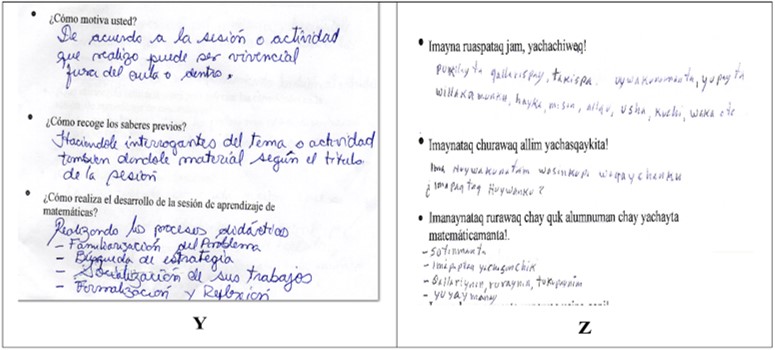 ¿Cómo motiva usted?
De acuerdo a la sesión o actividad
que realizo puede ser vivencial
fuera del aula o dentro.
¿Cómo recoge los saberes previos?
Haciendole interrogantes del tema o actividad
tambien dandole material según el titulo
de la sesión
¿Cómo realiza el desarrollo de la sesión de aprendizaje de
matemáticas?
Realizando los procesos didácticos
- Familiarización del Problema
- Búsqueda de estrategia
- Socialización de sus trabajos
- Formalización y Reflexión
Y
Imayna ruaspataq jam, yachachiweq!
qallarispay, takispa. uywakunamanta,
willakamunku, hayka, misin, allqu, usha, kuchi, waka etc
Imaynataq churawaq allim yachasqaykita!
Ima wasinkupi
Imanaynataq rurawaq chay quk alumnuman chay yachayta
matemáticamanta!.
- Sutinmanta
- yachasunchik
- Qallariynin, ruraynin, tukupanin
- yuyaymanay
Z